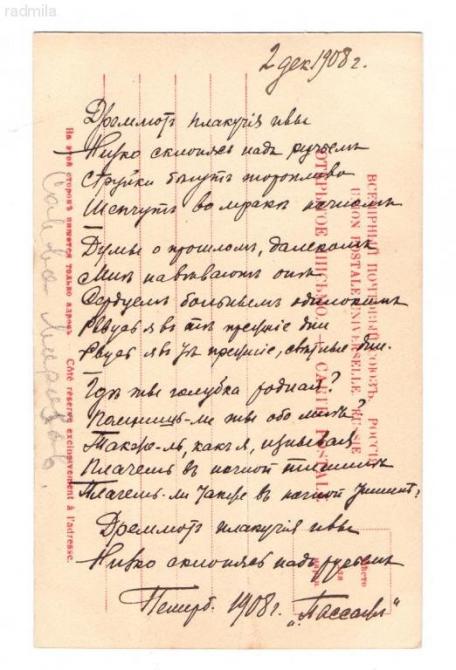 radmila
2 дек 1908 г.
Дремлютъ плакучія ивы
Низко склоняясь надъ ручьемъ
Струйки бѣгутъ торопливо
Шепчутъ во мракѣ ночномъ
Думы о прошломъ, далекомъ
Мнѣ навѣваютъ онѣ
Сердцемъ больнымъ одинокимъ
Рвусь я въ тѣ прежніе дни
Рвусь я въ тѣ прежніе, свѣтлые дни.
Гдѣ ты голубка родная?
Помнишь-ли ты обо мнѣ?
Также-ль, какъ я, изнывая
Плачешь въ ночной тишинѣ
Плачешь-ли также въ ночной тишинѣ?
Дремлютъ плакучія ивы
Низко склоняясь надъ ручьемъ
Петерб. 1908 г. "Пассажъ"
ВСЕМІРНЫЙ ПОЧТОВЫЙ СОЮЗЪ. РОССІЯ
UNION POSTALE UNIVERSELLE. RUSSIE
ОТКРЫТОЕ ПИСЬМО. — CARTE POSTALE
На этой сторонѣ пишется только адресъ. Côté réservé exclusivement à l'adresse.